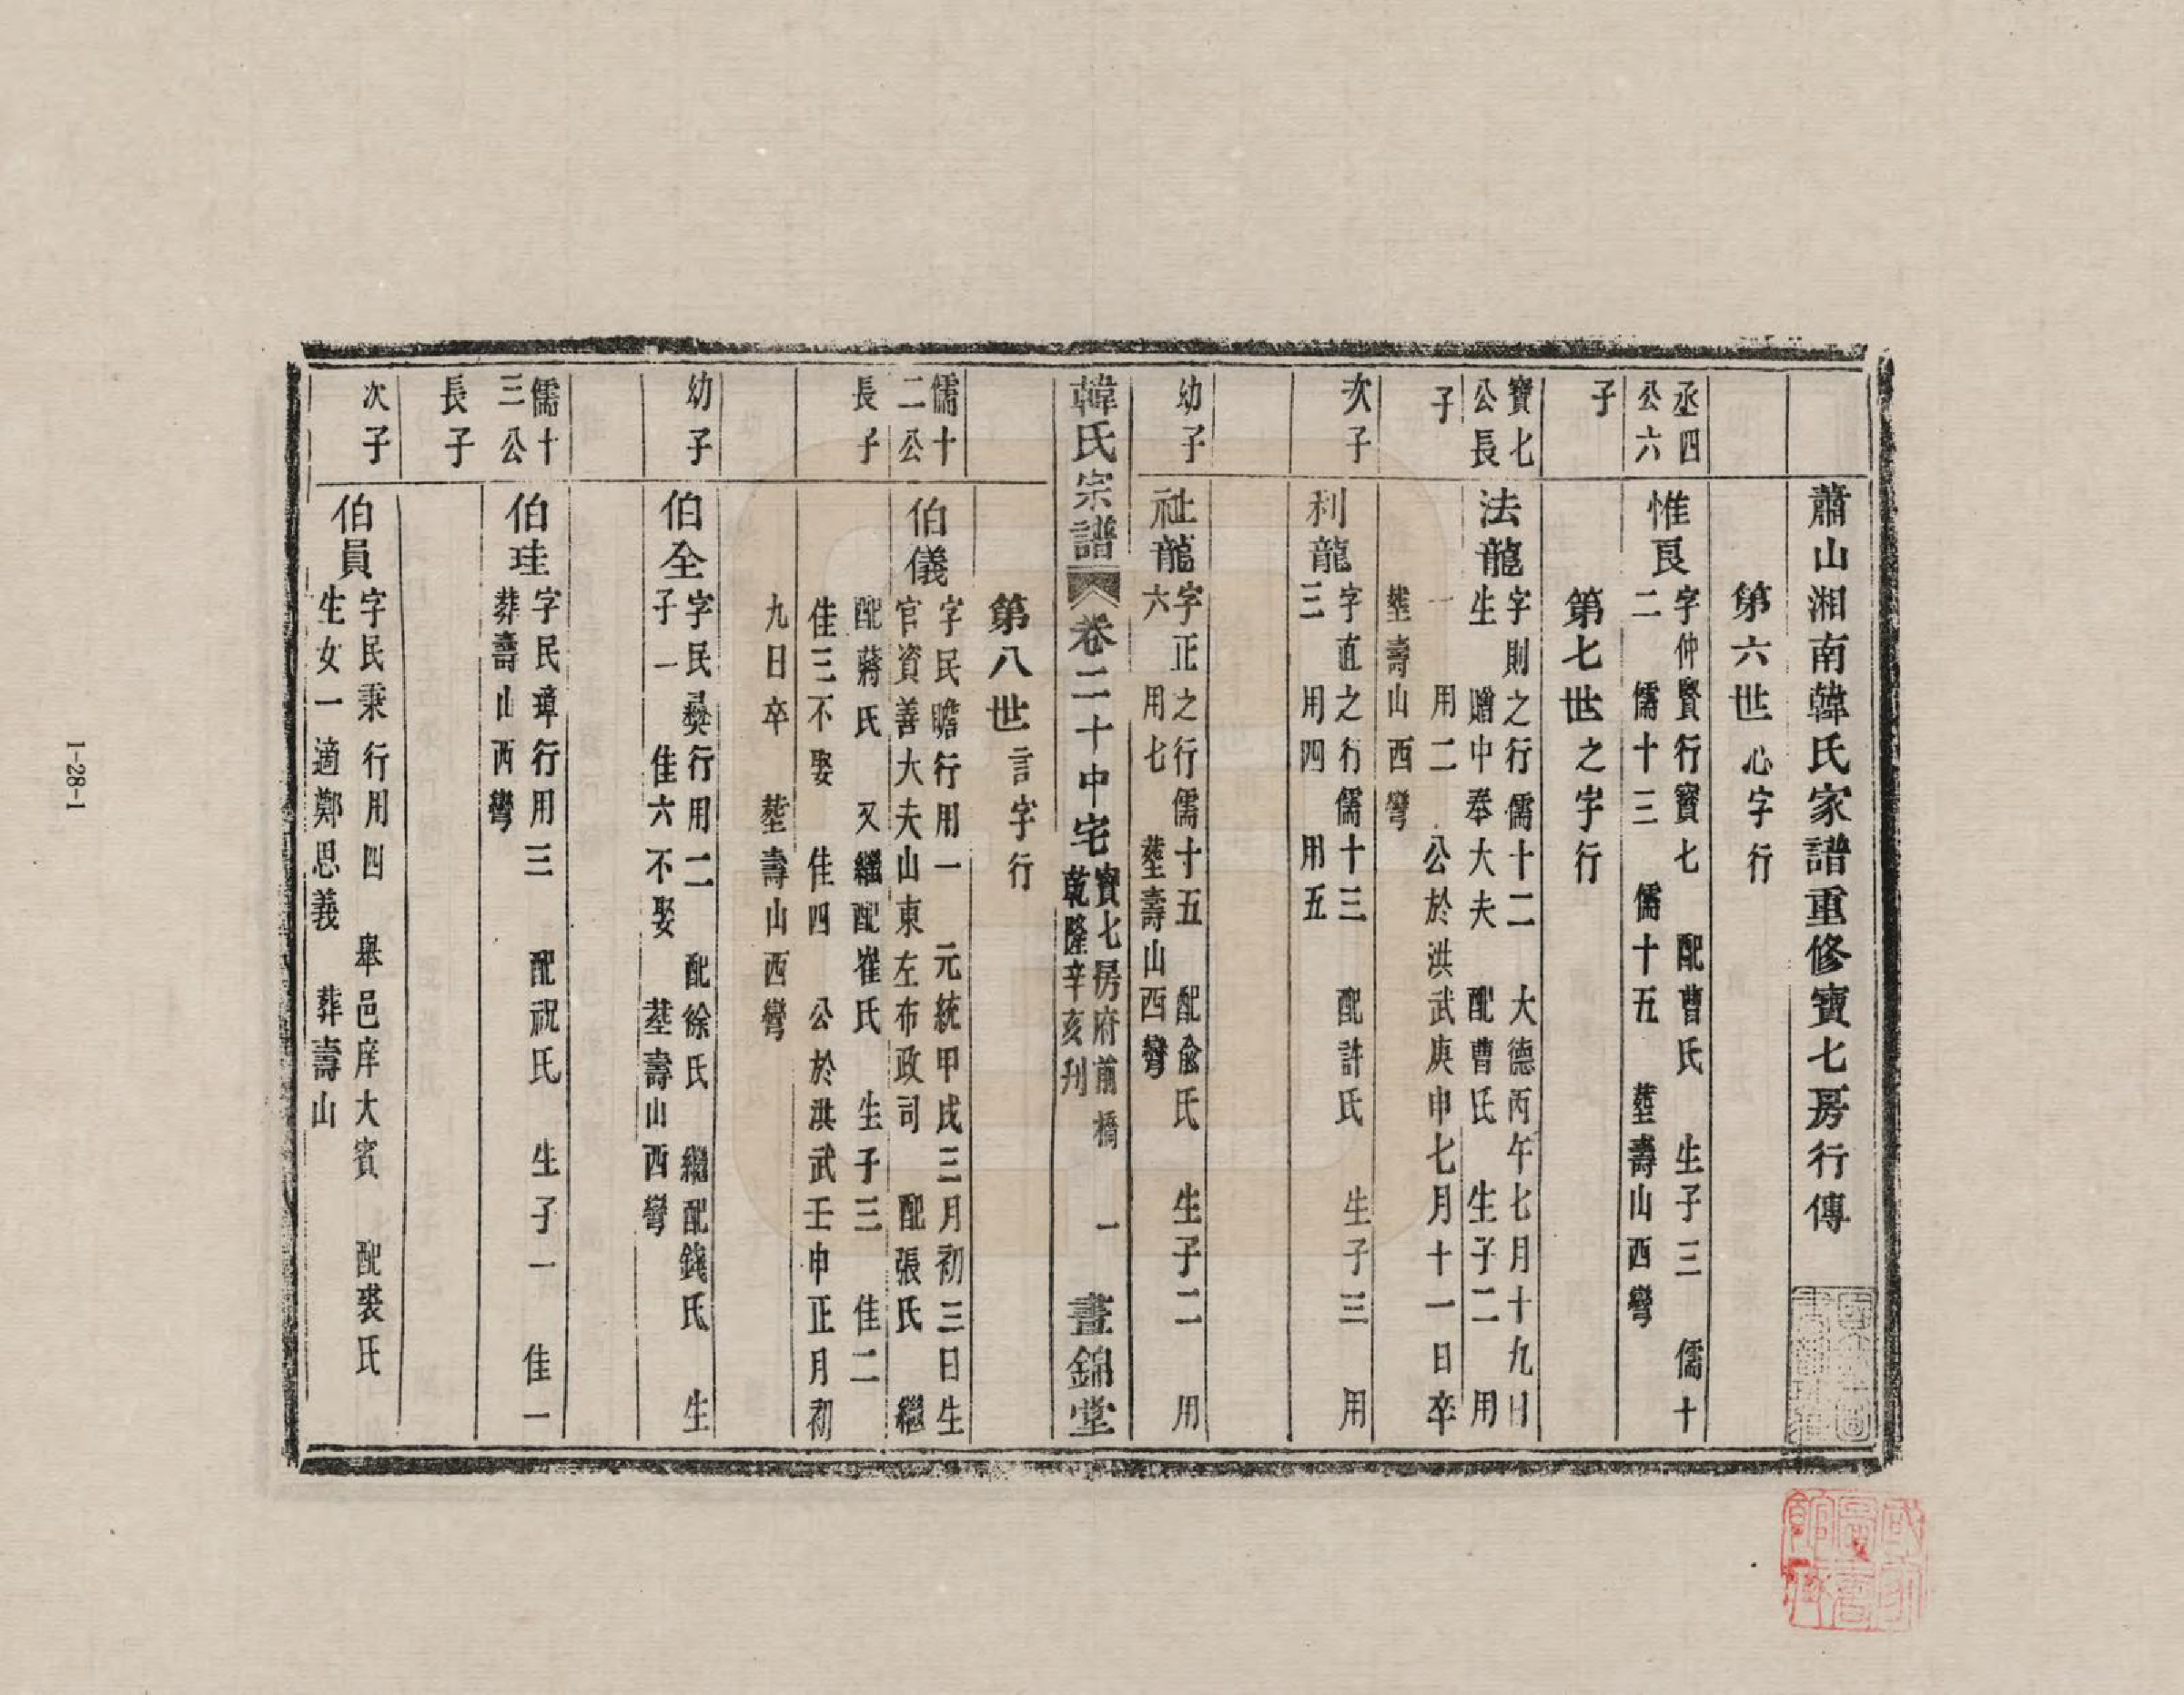 蕭山湘南韓氏家譜重修寶七房行傳
第六世心字行
丞四
公六
子
惟良
字仲賢行寶七 配曹氏 生子三 儒十
二 儒十三 儒十五 塟壽山西彎
第七世之字行
寶七
公長
子
法龍
字則之行儒十二 大德丙午七月十九日
生 贈中奉大夫 配曹氏 生子二 用
一 用二 公於洪武庚申七月十一日卒
塟壽山西彎
次子
利龍
字直之行儒十三 配許氏 生子三 用
三 用四 用五
幼子
祉龍
字正之行儒十五 配俞氏 生子二 用
六 用七 塟壽山西彎
韓氏宗譜 卷二十中宅
寶七房府前橋
乾隆辛亥刋
一 晝錦堂
第八世言字行
儒十
二公
長子
伯儀
字民瞻行用一 元統甲戌三月初三日生
官資善大夫山東左布政司 配張氏 繼
配蔣氏 又繼配崔氏 生子三 佳二
佳三不娶 佳四 公於洪武壬申正月初
九日卒 塟壽山西彎
幼子
伯全
字民彝行用二 配徐氏 繼配錢氏 生
子一 佳六不娶 塟壽山西彎
儒十
三公
長子
伯珪
字民璋行用三 配祝氏 生子一 佳一
葬壽山西彎
次子
伯員
字民秉行用四 舉邑庠大賓 配裘氏
生女一適鄭思義 葬壽山
1-28-1